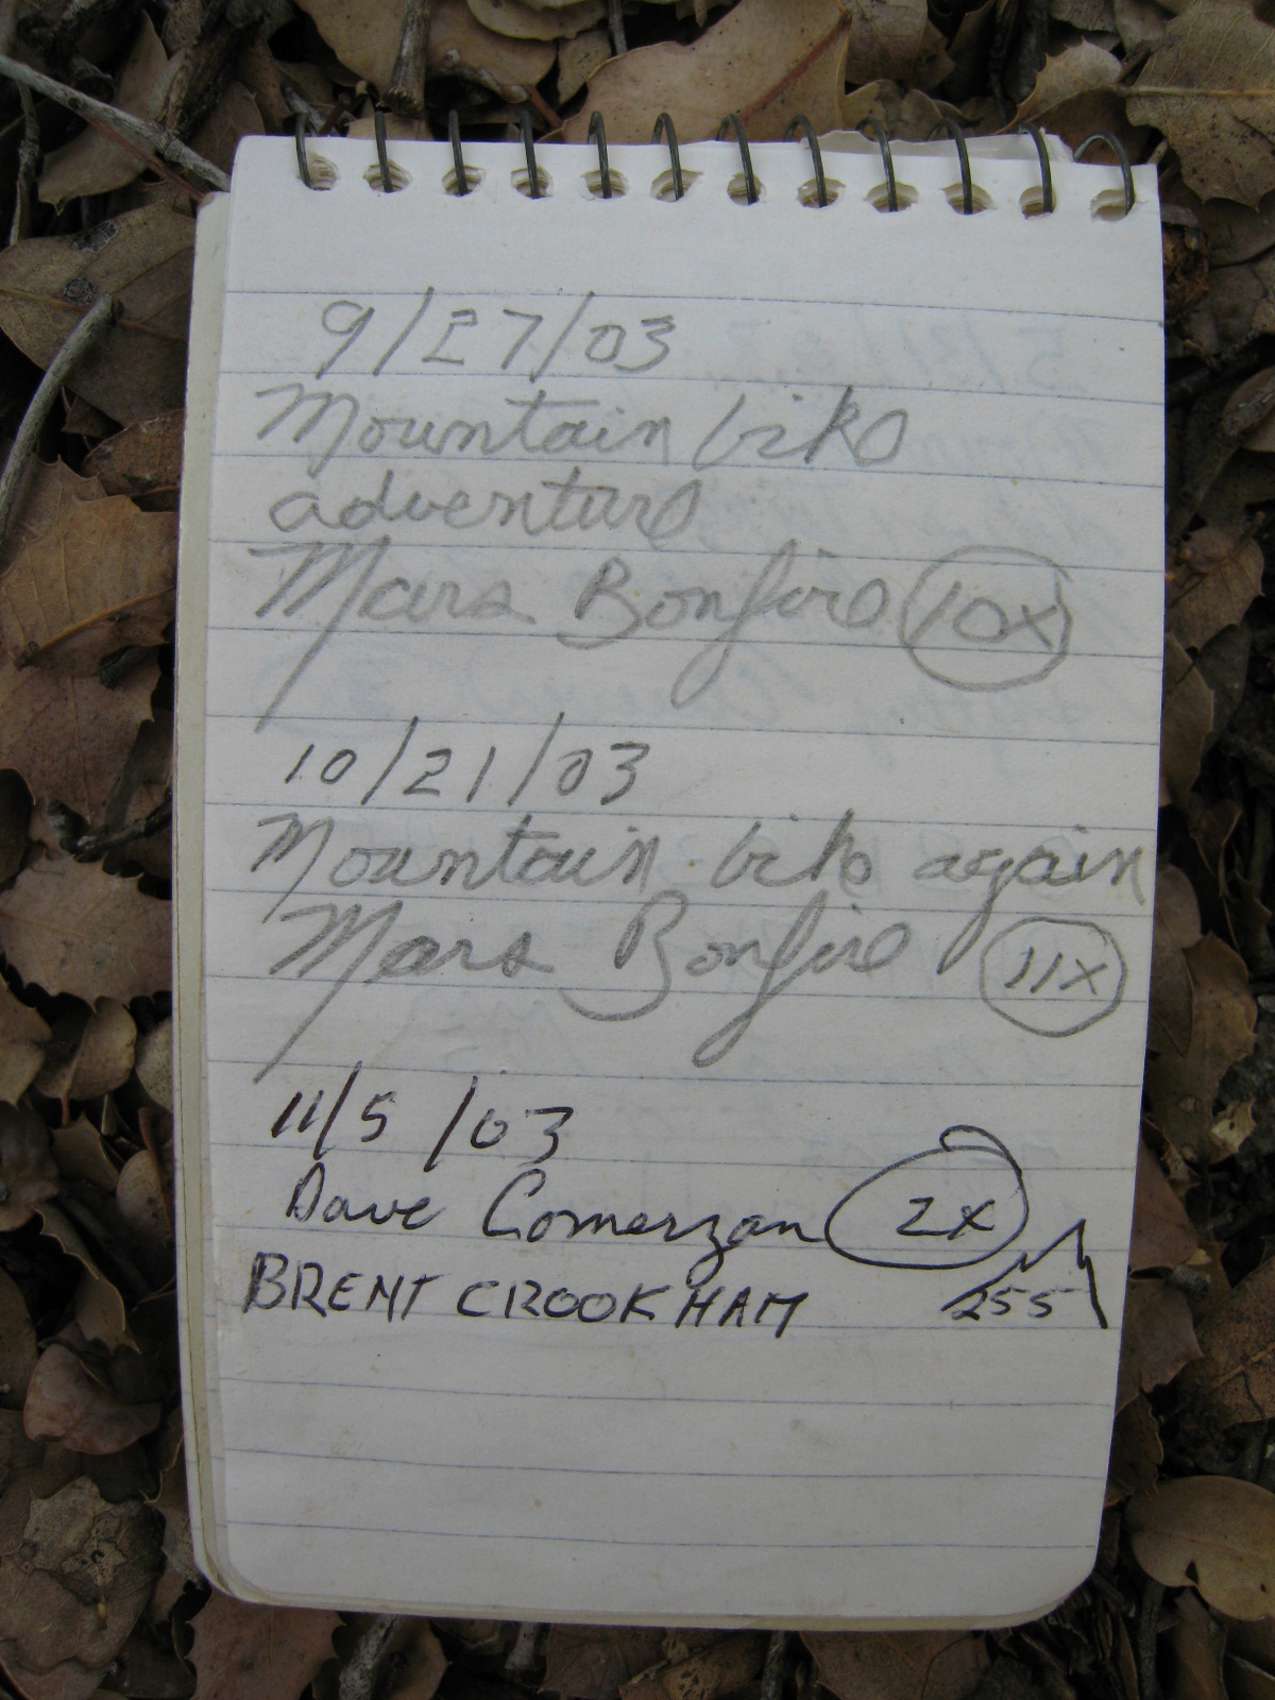 9/27/03
Mountain bike
adventure
Mars Bonfire 10x
10/21/03
Mountain bike again
Mars Bonfire 11x
11/5/03
Dave Comerzan 2x
BRENT CROOKHAM 255